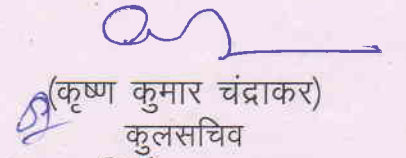 (कृष्ण कुमार चंद्राकर)
कुलसचिव